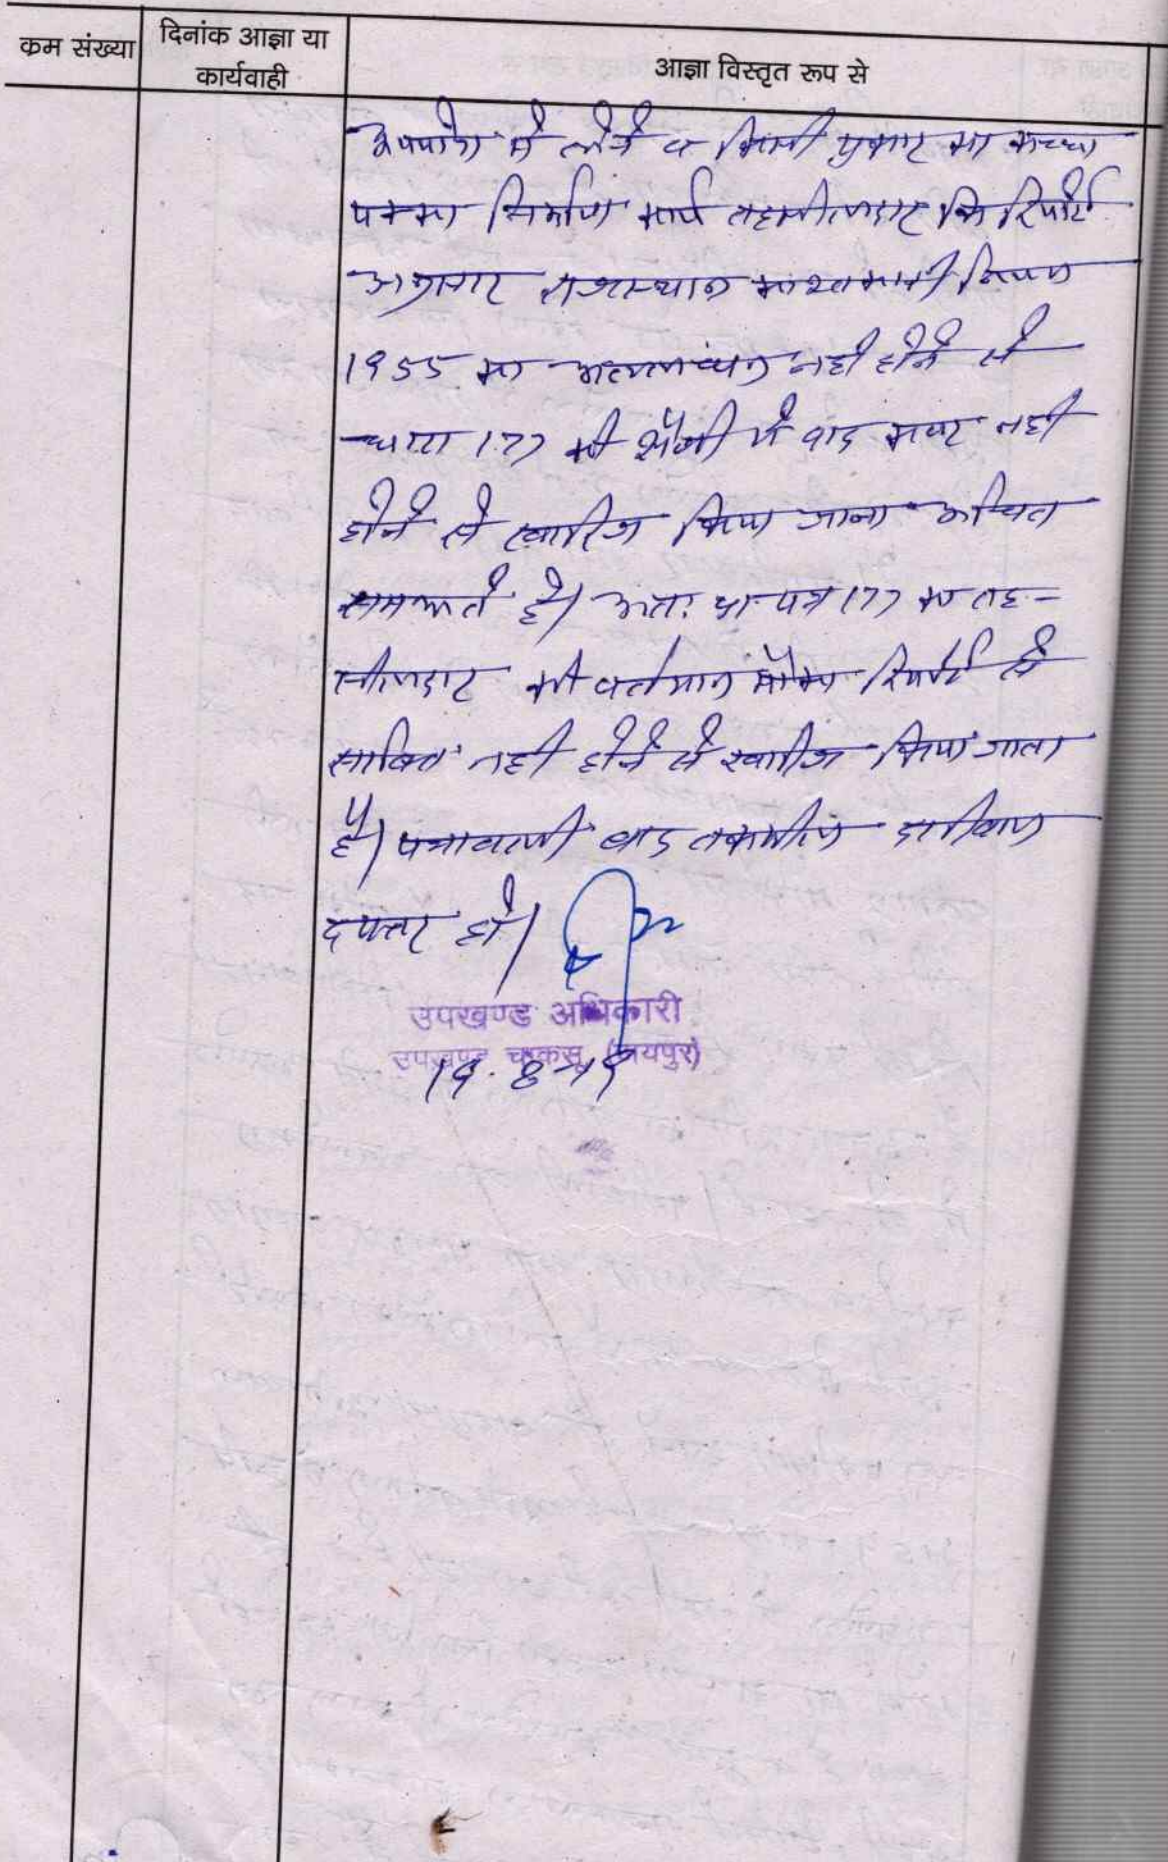 क्रम संख्या
दिनांक आज्ञा या
कार्यवाही
आज्ञा विस्तृत रूप से
उपयोग में लेने व किसी प्रकार का कच्चा
पक्का निर्माण कार्य तहसीलदार कि रिपोर्ट
अनुसार राजस्थान काश्तकारी नियम
1955 का उल्लंघन नही होने से
धारा 177 की श्रेणी में वाद नही
होने से खारिज किया जाना उचित
समझते है। अतः प्रा. पत्र 177 का तह-
सीलदार की वर्तमान मौका रिपोर्ट से
साबित नही होने से खारिज किया जाता
है। पत्रावली बाद तकमील दाखिल
दफ्तर हो।
उपखण्ड अधिकारी
उपखण्ड चाकसू (जयपुर)